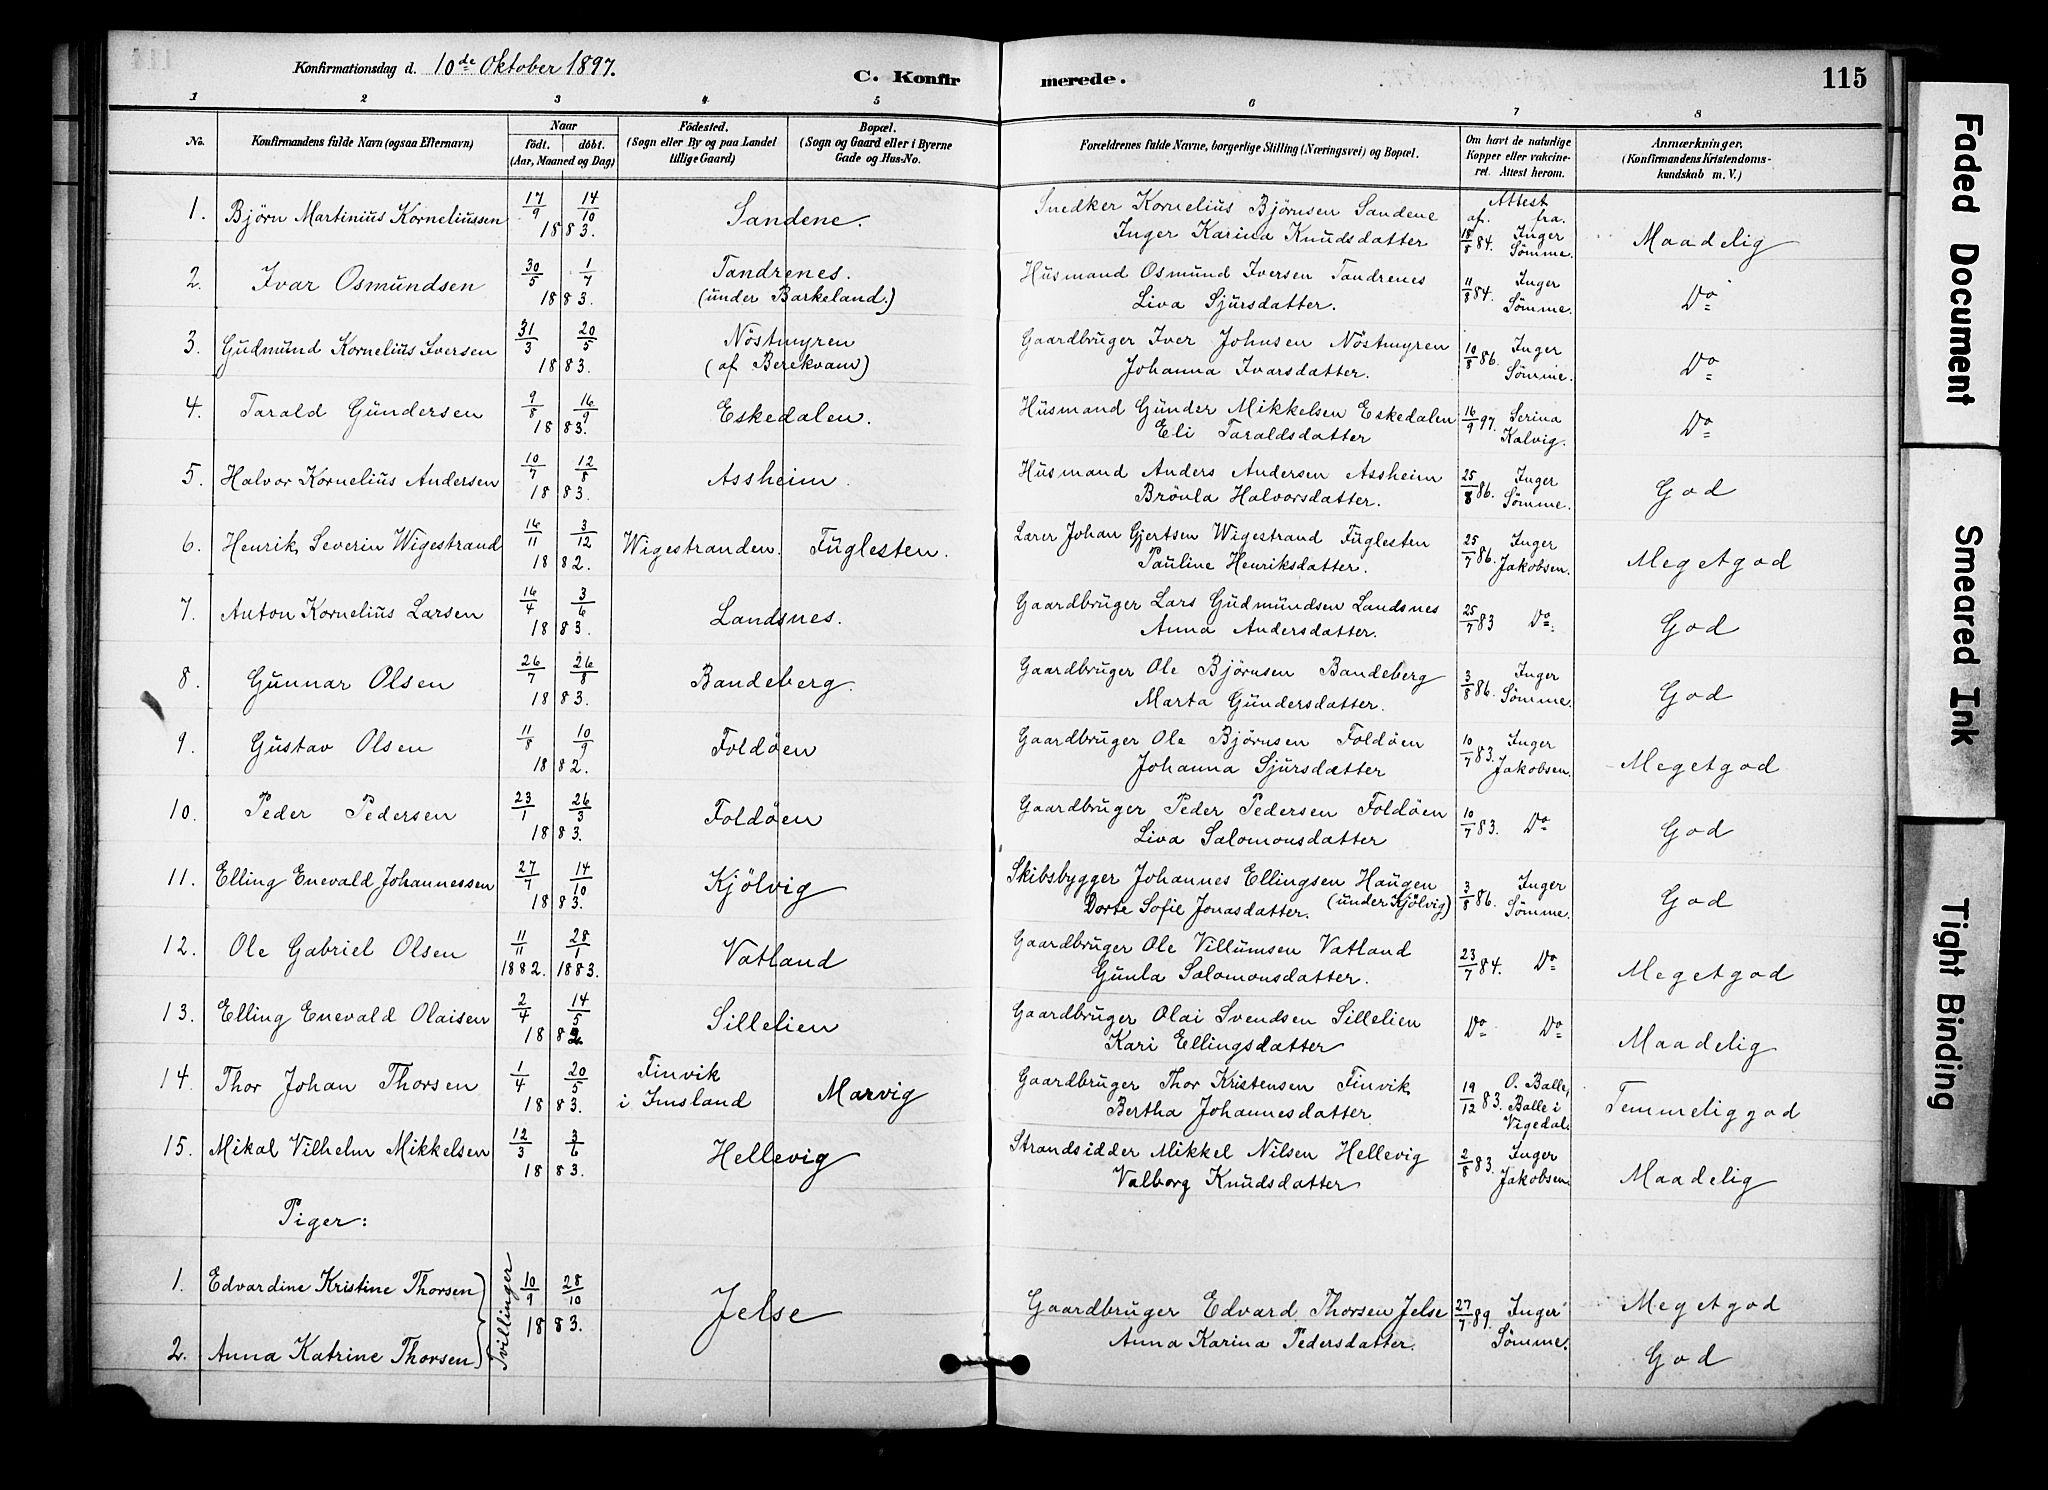 Konfirmationsdag d. 10de Oktober 1897.
C. Konfirmerede.
115
1 2 3 4 5 6 7 8
No.
Konfirmandens fulde Navn (ogsaa Efternavn)
Naar
født. døbt.
(Aar, Maaned og Dag)
Fødested.
(Sogn eller By og paa Landet
tillige Gaard)
Bopæl.
(Sogn og Gaard eller i Byerne
Gade og Hus-No.
Forældrenes fulde Navne, borgerlige Stilling (Næringsvei) og Bopæl.
Om havt de naturlige
Kopper eller vakcine-
ret. Attest herom.
Anmærkninger.
(Konfirmandens Kristendoms-
kundskab m. V.)
1. Björn Martinius Korneliussen 17/9 14/10 1883. Sandene. Snedker Kornelius Björnsen Sandene Attest af. fra.
Inger Karina Knudsdatter 18/8 84. Inger Sömme. Maadelig
2. Ivar Osmundsen 30/5 1/7 1883. Tandrenes. Husmand Osmund Iversen Tandrenes
(under Barkeland.) Liva Sjursdatter. 11/8 84. Inger Sömme. Do
3. Gudmund Kornelius Iversen 31/3 20/5 1883. Nöstmyren Gaardbruger Iver Johnsen Nöstmyren
(af Berekvam) Johanna Ivarsdatter. 10/8 86. Inger Sömme. Do
4. Tarald Gundersen 9/8 16/9 1883. Eskedalen. Husmand Gunder Mikkelsen Eskedalen
Eli Taraldsdatter 16/9 97. Serina Kalvig. Do
5. Halvor Kornelius Andersen 10/7 12/8 1883. Assheim. Husmand Anders Andersen Assheim
Brönla Halvorsdatter. 25/8 86. Inger Sömme. God
6. Henrik Severin Wigestrand 16/11 3/12 1882. Wigestranden. Fuglesten. Lærer Johan Gjertsen Wigestrand Fuglesten
Pauline Henriksdatter. 25/7 86. Inger Jakobsen. Megetgod
7. Anton Kornelius Larsen 16/4 3/6 1883. Landsnes. Gaardbruger Lars Gudmundsen Landsnes
Anna Andersdatter. 25/7 83 Do. God
8. Gunnar Olsen 26/7 26/8 1883. Bandeberg. Gaardbruger Ole Björnsen Bandeberg
Marta Gundersdatter. 3/8 86. Inger Sömme. God
9. Gustav Olsen 11/8 10/9 1882. Foldöen Gaardbruger Ole Björnsen Foldöen
Johanna Sjursdatter 10/7 83. Inger Jakobsen. Megetgod
10. Peder Pedersen 23/1 26/3 1883. Foldöen Gaardbruger Peder Pedersen Foldöen
Liva Salomonsdatter 10/7 83. Do God
11. Elling Enevald Johannessen 27/7 14/10 1883. Kjölvig Skibsbygger Johannes Ellingsen Haugen
Dorte Sofie Jonasdatter. (under Kjölvig) 3/8 86. Inger Sömme. God
12. Ole Gabriel Olsen 11/11 1882. 28/1 1883. Vatland Gaardbruger Ole Villumsen Vatland
Gunla Salomonsdatter. 23/7 84. Do Megetgod
13. Elling Enevald Olaisen 2/4 14/5 1882 Sillelien Gaardbruger Olai Svendsen Sillelien
Kari Ellingsdatter Do Do Maadelig
14. Thor Johan Thorsen 1/4 20/5 1883. Finvik i Imsland Marvig Gaardbruger Thor Kristensen Finvik
Bertha Johannesdatter. 19/12 83. O. Balle, Balle i Vigedal. Temmeliggod
15. Mikal Vilhelm Mikkelsen 12/3 3/6 1883. Hellevig Strandsidder Mikkel Nilsen Hellevig
Valborg Knudsdatter 2/8 83. Inger Jakobsen. Maadelig
Piger:
1. Edvardine Kristine Thorsen Tvillinger 10/9 28/10 1883. Jelse Gaardbruger Edvard Thorsen Jelse 27/7 89. Inger Megetgod
2. Anna Katrine Thorsen Anna Karina Pedersdatter. Sömme. God
Faded Document
Smeared Ink
Tight Binding